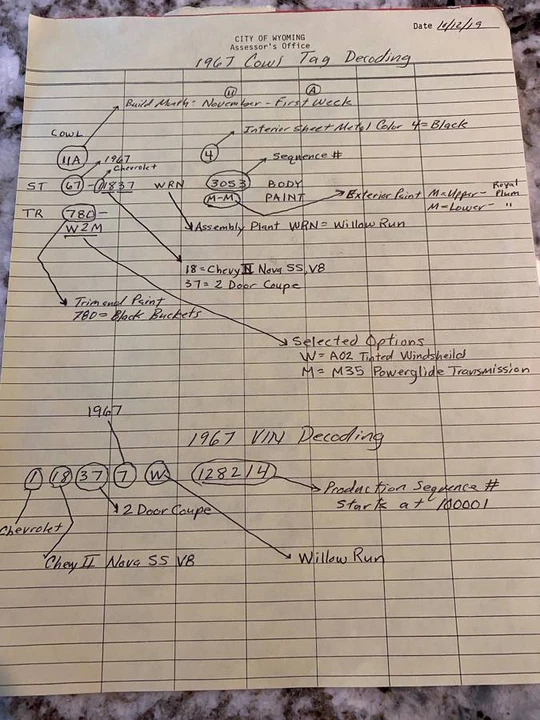 Date 11/12/19
CITY OF WYOMING
Assessor's Office
1967 Cowl Tag Decoding
11 A
Build Month - November - First Week
Interior Sheet Metal Color 4 = Black
COWL
11A 1967 4 Sequence #
Chevrolet
ST 67-11837 WRN 3053 BODY
M-M PAINT Exterior Paint M = Upper - Royal Plum
M = Lower - "
TR 780-
W2M Assembly Plant WRN = Willow Run
18 = Chevy II Nova SS, V8
37 = 2 Door Coupe
Trim and Paint
780 = Black Buckets
Selected Options
W = A02 Tinted Windsheild
M = M35 Powerglide Transmission
1967
1967 VIN Decoding
1 18 37 7 W 128214
Production Sequence #
Starts at 100001
2 Door Coupe
Chevrolet
Chevy II Nova SS V8 Willow Run